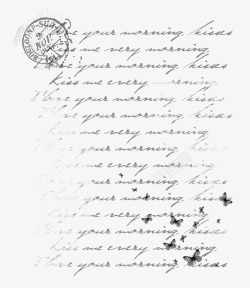 BOULOGNE-SUR-M
love your morning kisses
Kiss me very morning
I love your morning kisses
Kiss me every morning
I love your morning kisses
love your morning kisses
Kiss me very morning
I love your morning kisses
Kiss me every morning
I love your morning kisses
love your morning kisses
Kiss me very morning
I love your morning kisses
Kiss me every morning
I love your morning kisses